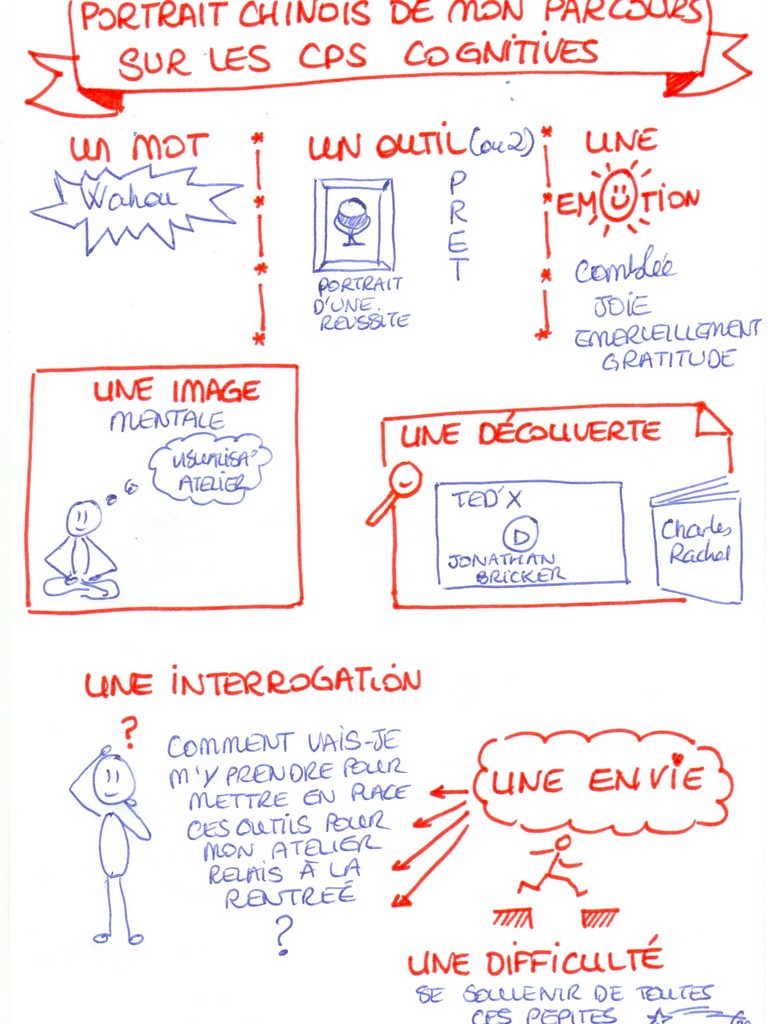 PORTRAIT CHINOIS DE MON PARCOURS
SUR LES CPS COGNITIVES
UN MOT
Wahou
UN OUTIL (ou 2)
PORTRAIT
D'UNE
REUSSITE
P
R
E
T
UNE
EMOTION
Comblée
JOIE
EMERVEILLEMENT
GRATITUDE
UNE IMAGE
MENTALE
VISUALISA°
ATELIER
UNE DÉCOUVERTE
TED'X
JONATHAN
BRICKER
Charles
Rachel
UNE INTERROGATION
?
COMMENT VAIS-JE
M'Y PRENDRE POUR
METTRE EN PLACE
CES OUTILS POUR
MON ATELIER
RELAIS À LA
RENTREÉ
?
UNE ENVIE
UNE DIFFICULTÉ
SE SOUVENIR DE TOUTES
CES PEPITES